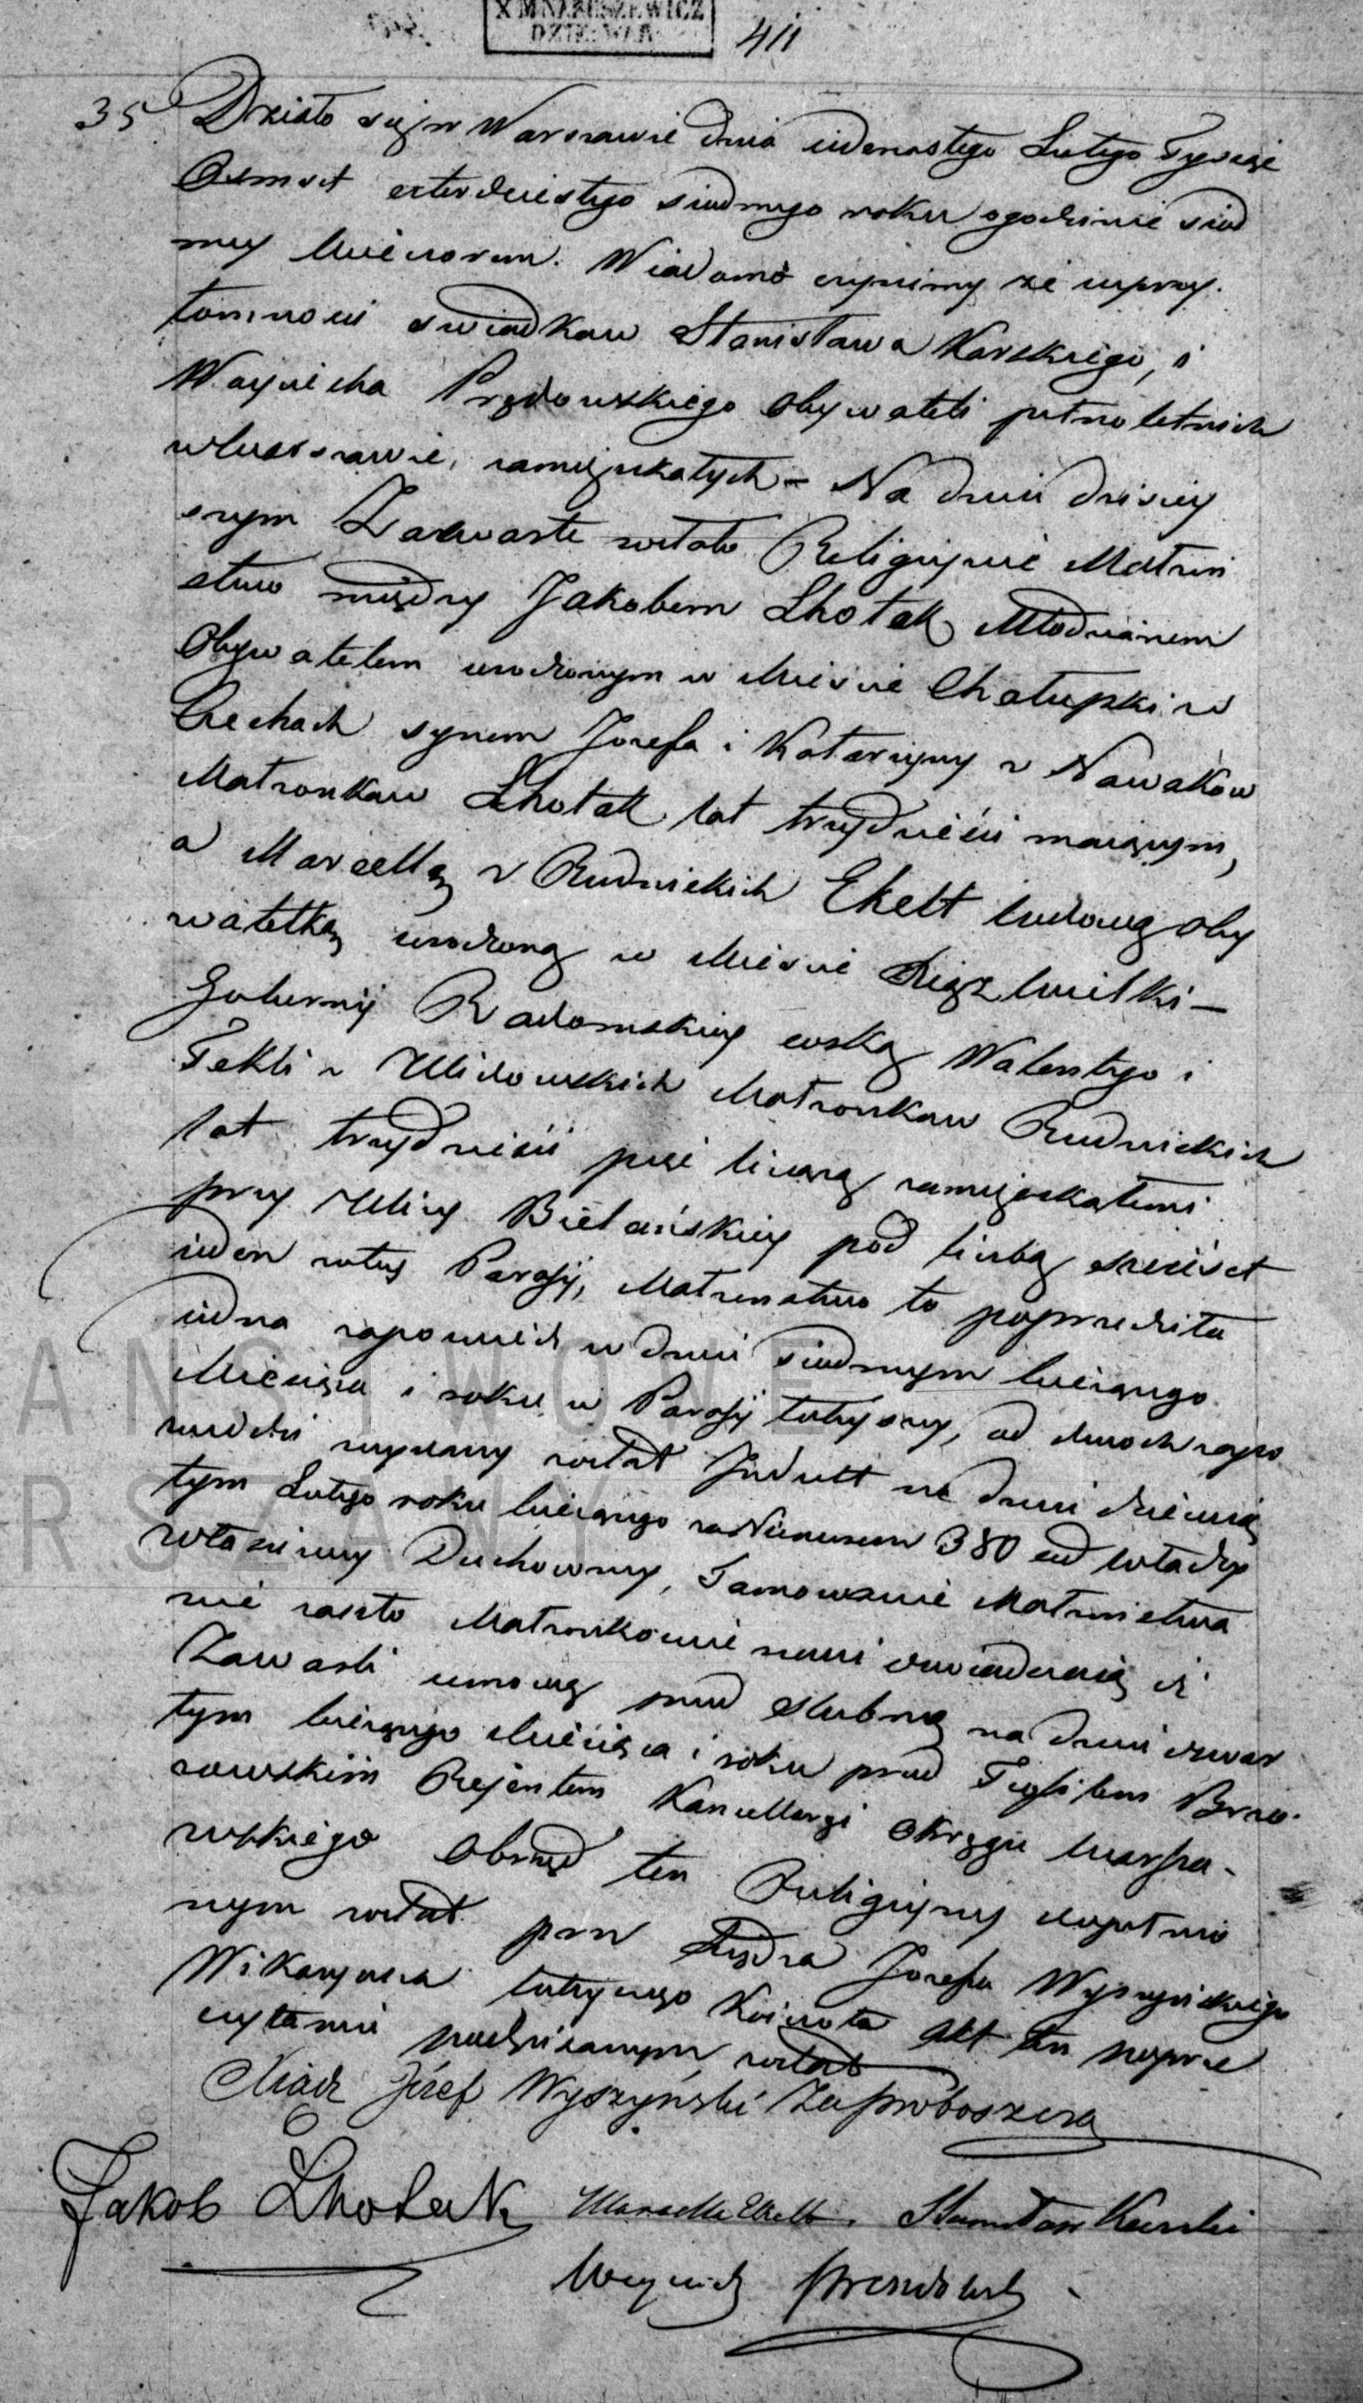 X M NARUSZEWICZ
DZIEKAN
411
35 Działo się w Warszawie dnia iedenastego Lutego Tysiąc
Osmset czterdziestego siodmego roku o godzinie siod
mey Wieczorem. Wiadomo czynimy że w przy-
tomności swiadkow Stanisława Karskiego, i
Woyciecha Prędowskiego Obywateli pełnoletnich
w Warszawie, zamięszkałych – Na dniu dzisiey
szym Zawarte zostało Religijnie Małżeń
stwo między Jakobem Lhotak Młodzianem
Obywatelem urodzonym w Mieście Chałupki w
Czechach synem Jozefa i Katarzyny z Nowaków
Małżonkow Lhotak lat trzydzieści maiącym,
a Marcellą z Rudnickich Ekelt wdową oby
watelką urodzoną w Mieście Xiąż Wielki –
Gubernij Radomskiey corką Walentego i
Tekli z Małżonkow Rudnickich
lat trzydzieści pięć liczącą zamięszkałemi
przy Ulicy Bielańskiey pod liczbą sześćset
ieden w tey Parafij, Małżeństwo to poprzedziła
iedna zapowiedz w dniu siodmym bieżącego
Miesiąca i roku w Parafij tuteyszey, od dwoch zapo
wiedzi wydany został Indult na dniu dziewią
tym Lutego roku bieżącego za Numerem 380 od władzy
właściwey Duchowney, Tamowanie Małżeństwa
nie zaszło Małżonkowie nowi oswiadczaią iż
Zawarli umowę przed slubną na dniu czwar
tym bieżącego Miesiąca i roku przed Teofilem Brzo-
zowskim Rejentem Kancellaryi Okręgu Warsza-
wskiego Obrzęd ten Religijny dopełnio
nym został przez Xiędza Jozefa Wyszyńskiego
Wikaryusza tuteyszego Kościoła Akt ten po prze
czytaniu podpisanym został
Xiądz Józef Wyszyński Za proboszcza
Jakob Lhotak Marcella Ekelt. Stanisław Karski
Woyciech Prendowski
PAŃSTWOWE
WARSZAWY